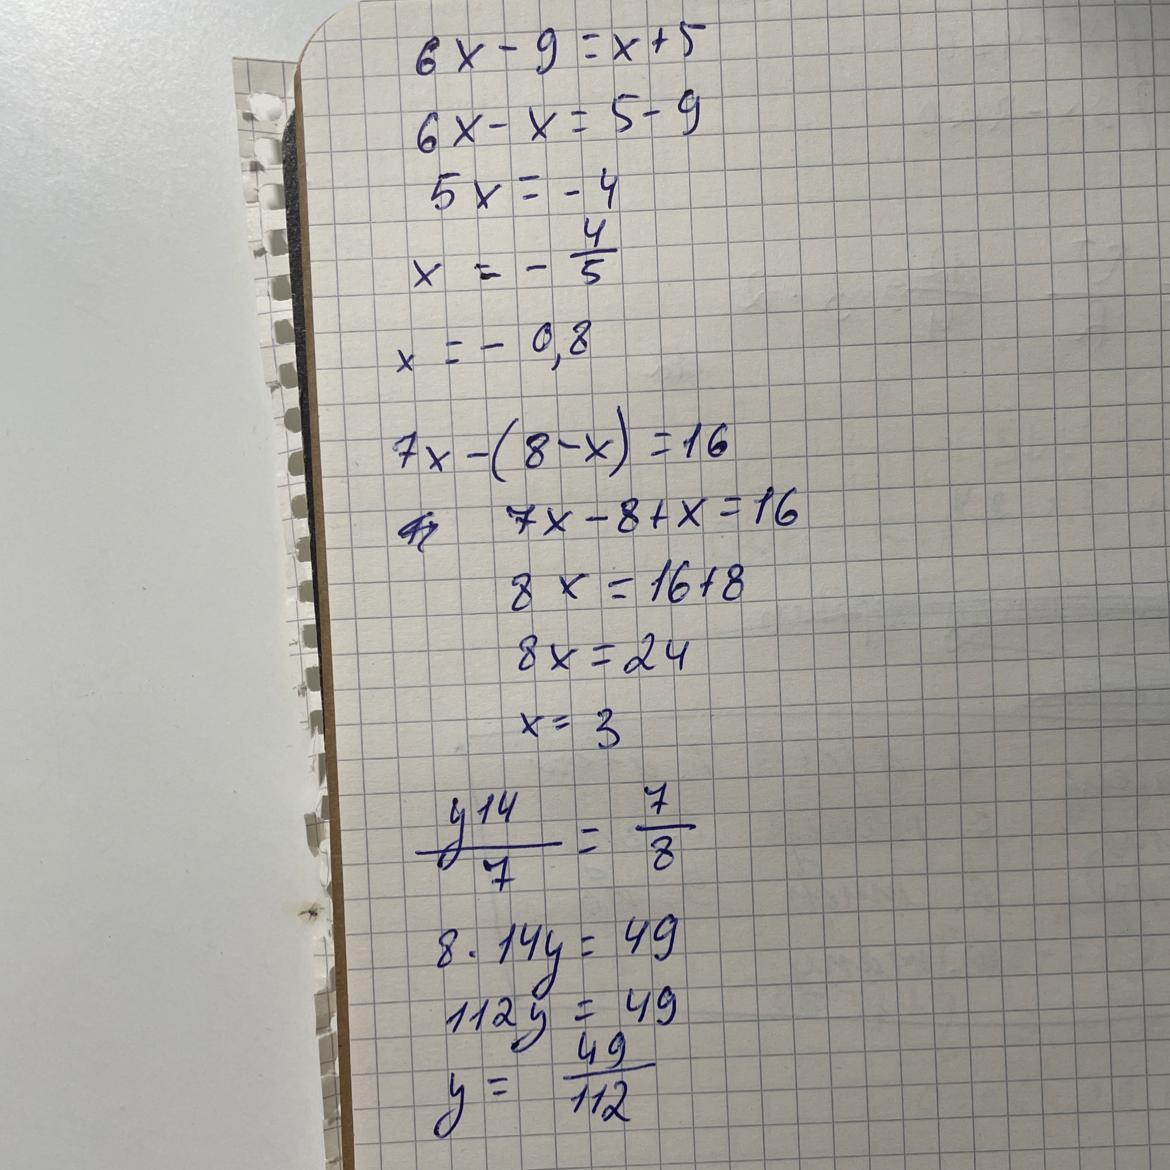 6x - 9 = x + 5
6x - x = 5 - 9
5x = - 4
x = - 4/5
x = - 0,8
7x - (8 - x) = 16
7x - 8 + x = 16
8x = 16 + 8
8x = 24
x = 3
y14/7 = 7/8
8 · 14y = 49
112y = 49
y = 49/112